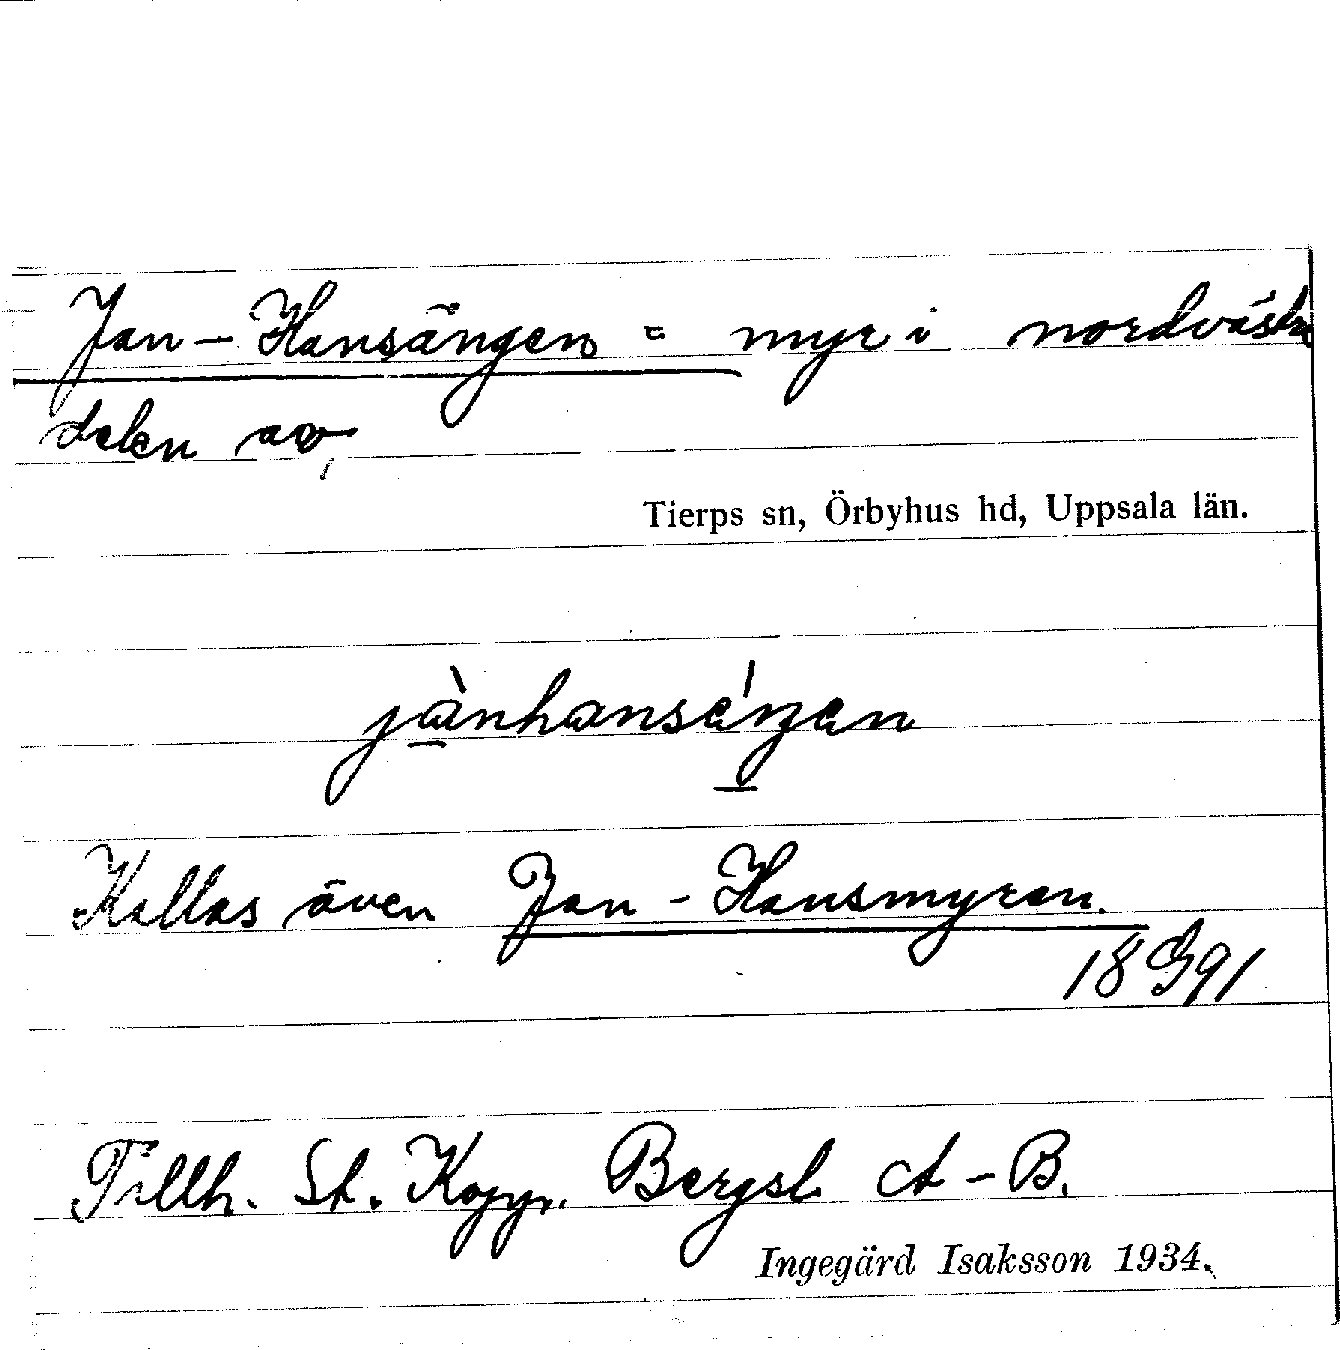 Jan-Hansängen = myr i nordvästra
delen av,
Tierps sn, Örbyhus hd, Uppsala län.
jànhanséŋen
Kallas även Jan-Hansmyren.
18 G 91
Tillh. St. Kopp. Bergsl. A-B.
Ingegärd Isaksson 1934.